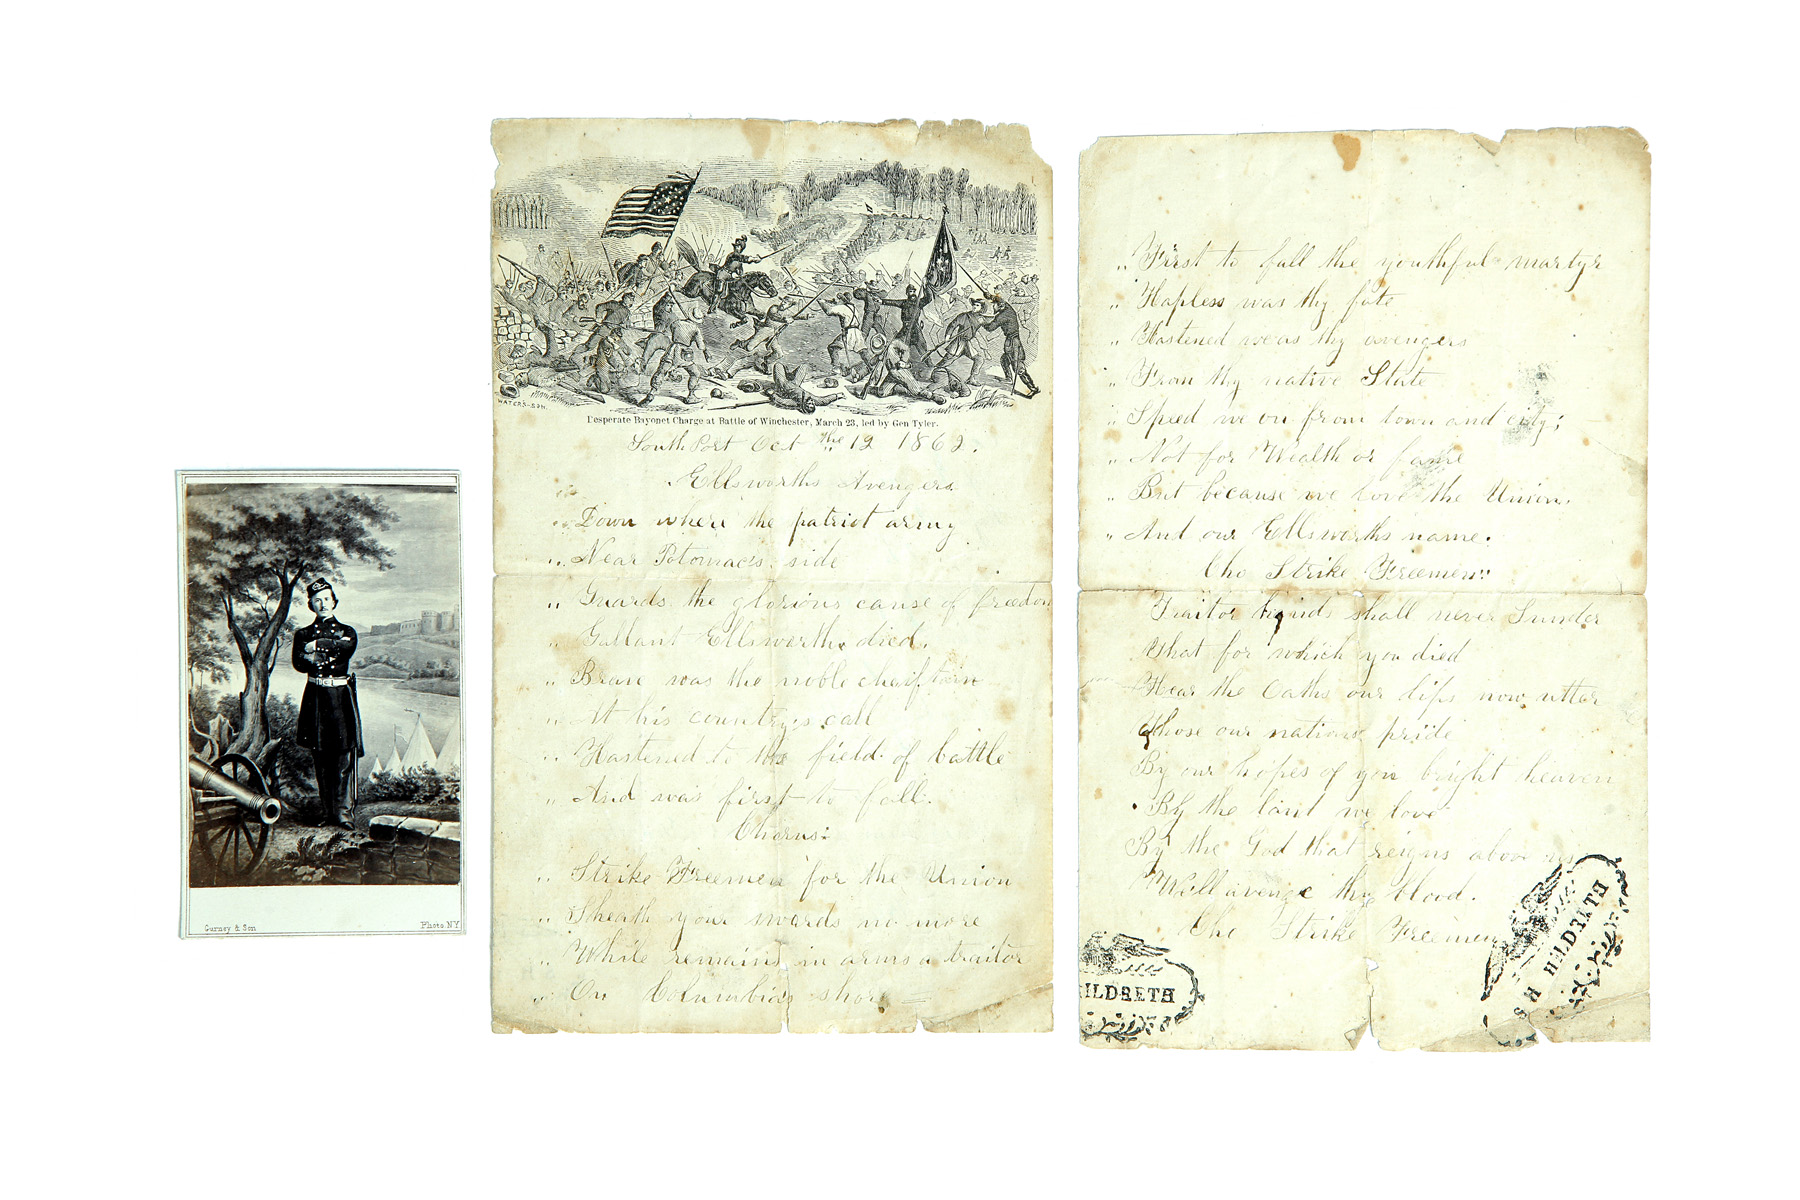 Gurney & Son
Photo. N.Y.
WATERS-SON.
Desperate Bayonet Charge at Battle of Winchester, March 23, led by Gen Tyler.
South Port Oct the 12 1862.
Ellsworths Avengers
Down where the patriot army
Near Potomac's side
Guards the glorious cause of freedom
Gallant Ellsworth died.
Brave was the noble cheiftain
At his country,s call
Hastened to the field of battle
And was first to fall.
Chorus:
Strike Freemen for the Union
Sheath your swords no more
While remains in arms a traitor
On Columbia's shore
First to fall the youthful martyr
Hapless was thy fate
Hastened we as thy avengers
From thy native State
Speed we on from town and city;
Not for Wealth or fame
But because we love the Union.
And our Ellsworths name.
Cho Strike Freemen:
Traitor hands shall never Sunder
That for which you died
Hear the Oaths our lips now utter
Those our nations pride
By our hopes of yon bright heaven
By the land we love
By the God that reigns above us
We'll avenge thy blood.
Cho Strike Freemen
ILDRETH
S H HILDRETH